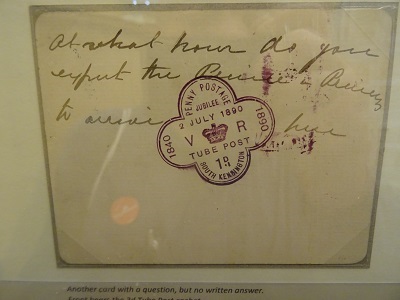 At what hour do you
expect the Prince &
to arrive here
PENNY POSTAGE
JUBILEE
2 JULY 1890
1840
1890
V R
TUBE POST
1D
SOUTH KENSINGTON
Another card with a question, but no written answer.